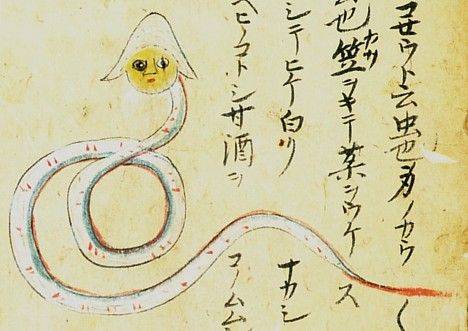 コセウト云虫也物ノカウ
虫也笠ヲキテ薬ヲウケス
シテヒケ白リナカシ
ヘヒノコトシ甘酒ヲコノム